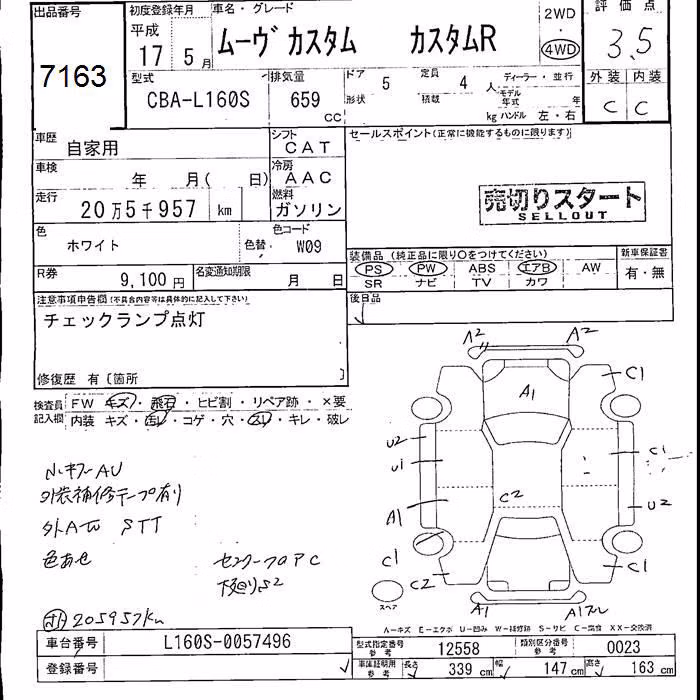 出品番号 初度登録年月 車名・グレード 2WD 評価点
平成 17 5月 ムーヴ カスタム カスタムR 4WD 3.5
7163
型式 排気量 ドア 5 定員 4 人 ディーラー・並行 外装 内装
CBA-L160S 659 CC 形状 積載 kg モデル年式 年 ハンドル 左・右 C C
車歴 自家用 シフト CAT セールスポイント(正常に機能するものに限ります)
車検 年 月( 日) 冷房 AAC
走行 20万5千957 km 燃料 ガソリン 売切りスタート
SELLOUT
色 ホワイト 色替 色コード W09
装備品 (純正品に限り○をつけてください) 新車保証書
PS PW ABS エアB AW 有・無
SR ナビ TV カワ
R券 9,100円 名変通知期限 月 日
後日品
注意事項申告欄(不具合内容等は具体的に記入して下さい)
チェックランプ点灯
修復歴 有〔箇所 〕
検査員記入欄 FW キズ・飛石・ヒビ割・リペア跡・×要
内装 キズ・汚レ・コゲ・穴・スレ・キレ・破レ
A2 A2
A1 C1
U2
U1 C1
C2 U2
A1
C1
C2 C1
スペア A1
外装補修テープ有り
色あせ
205957km
A-キズ E-エクボ U-凹み W-補修跡 S-サビ C-腐食 XX-交換済
車台番号 L160S-0057496 型式指定番号 参考 12558 類別区分番号 参考 0023
登録番号 車庫証明用 参考 長さ 339 cm 幅 147 cm 高さ 163 cm